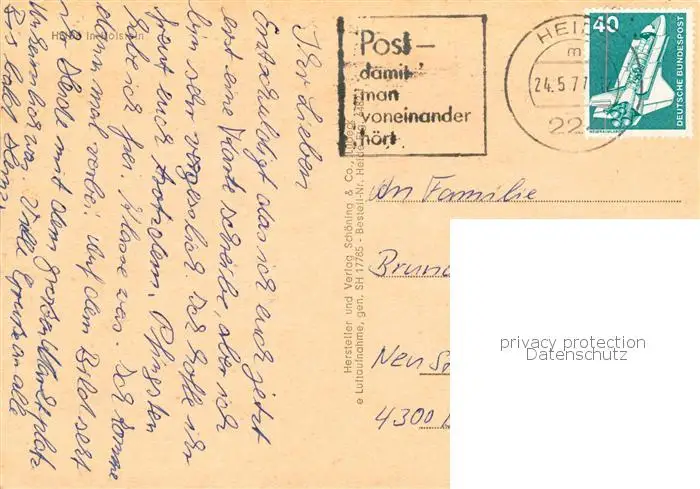 Heide in Holstein
Ihr Lieben
Entschuldigt das ich euch jetzt
erst eine Karte schreibe, aber ich
bin sehr vergesslich. Ich hoffe ihr
freut euch trotzdem. Pfingsten
habe ich frei. Wisse was. Ich komme
dann mal vorbei. Auf dem Bild seht
ihr Heide mit dem großen Marktplatz
Viele Grüße an alle
Bis bald
Hersteller und Verlag Schöning & Co., Lübeck
e Luftaufnahme, gen. SH 17785 - Bestell-Nr. Heide
Post-
damit
man
voneinander
hört
HEI
24.5.77
22
40
DEUTSCHE BUNDESPOST
An Familie
Brun
Neu
4300
privacy protection
Datenschutz